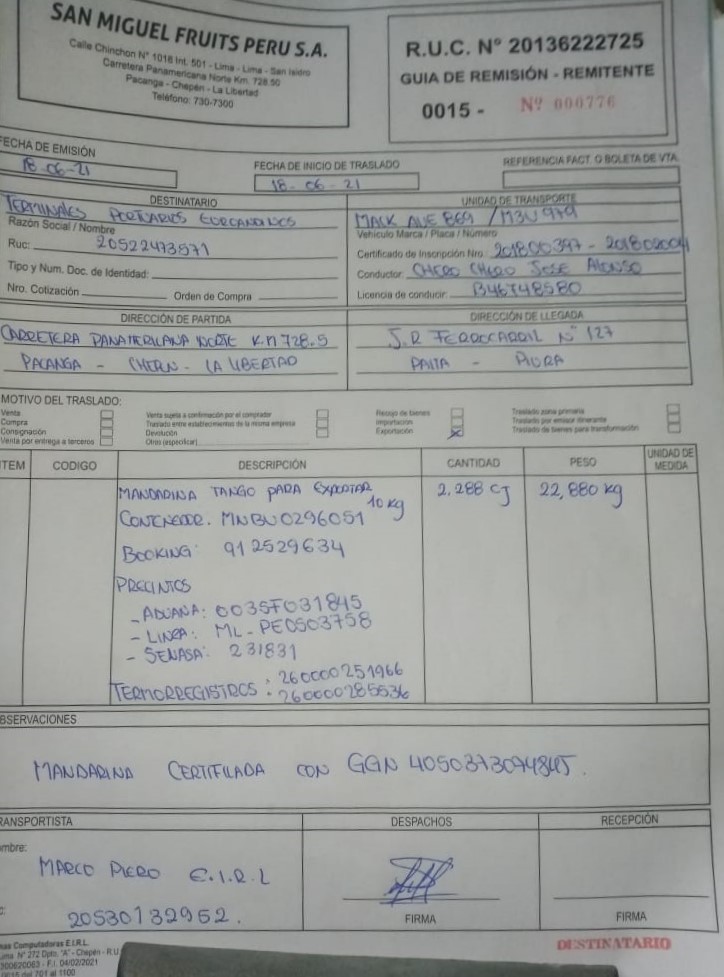 SAN MIGUEL FRUITS PERU S.A.
Calle Chinchon N° 1018 Int. 501 - Lima - Lima - San Isidro
Carretera Panamericana Norte Km. 728.50
Pacanga - Chepén - La Libertad
Teléfono: 730-7300
R.U.C. N° 20136222725
GUIA DE REMISIÓN - REMITENTE
0015 - Nº 000776
FECHA DE EMISIÓN
18-06-21
FECHA DE INICIO DE TRASLADO
18-06-21
REFERENCIA FACT. O BOLETA DE VTA.
DESTINATARIO
TERMINALES PORTUARIOS EUROANDINOS
Razón Social / Nombre
Ruc: 20522473571
Tipo y Num. Doc. de Identidad:
Nro. Cotización Orden de Compra
UNIDAD DE TRANSPORTE
MACK AUE 869 / M3U 979
Vehículo Marca / Placa / Número
Certificado de Inscripción Nro
Conductor: CHERO CHERO JOSE ALONSO
Licencia de conducir B46748580
DIRECCIÓN DE PARTIDA
CARRETERA PANAMERICANA NORTE K.M 728.5
PACANGA - CHEPEN - LA LIBERTAD
DIRECCIÓN DE LLEGADA
J.R FERROCARRIL N° 127
PAITA - PIURA
MOTIVO DEL TRASLADO:
Venta
Compra
Consignación
Venta por entrega a terceros
Venta sujeta a confirmación por el comprador
Traslado entre establecimientos de la misma empresa
Devolución
Otros (especificar)
Recojo de bienes
Importación
Exportación X
Traslado zona primaria
Traslado por emisor itinerante
Traslado de bienes para transformación
ITEM CODIGO DESCRIPCIÓN CANTIDAD PESO UNIDAD DE MEDIDA
MANDARINA TANGO PARA EXPORTAR 10 kg 2,288 CJ 22,880 kg
CONTENEDOR: MNBU0296051
BOOKING: 912529634
PRECINTOS
- ADUANA: 0035F031845
- LINEA: ML-PE0503758
- SENASA: 231831
TERMORREGISTROS: 260000251966
: 260000285536
OBSERVACIONES
MANDARINA CERTIFICADA CON GGN 4050373094845.
TRANSPORTISTA
DESPACHOS
RECEPCIÓN
Nombre:
MARCO PIERO E.I.R.L
20530132952.
FIRMA
FIRMA
DESTINATARIO
Computadoras E.I.R.L.
N° 272 Dpto. "A" - Chepén - R.U.
F.I. 04/02/2021
701 al 1100